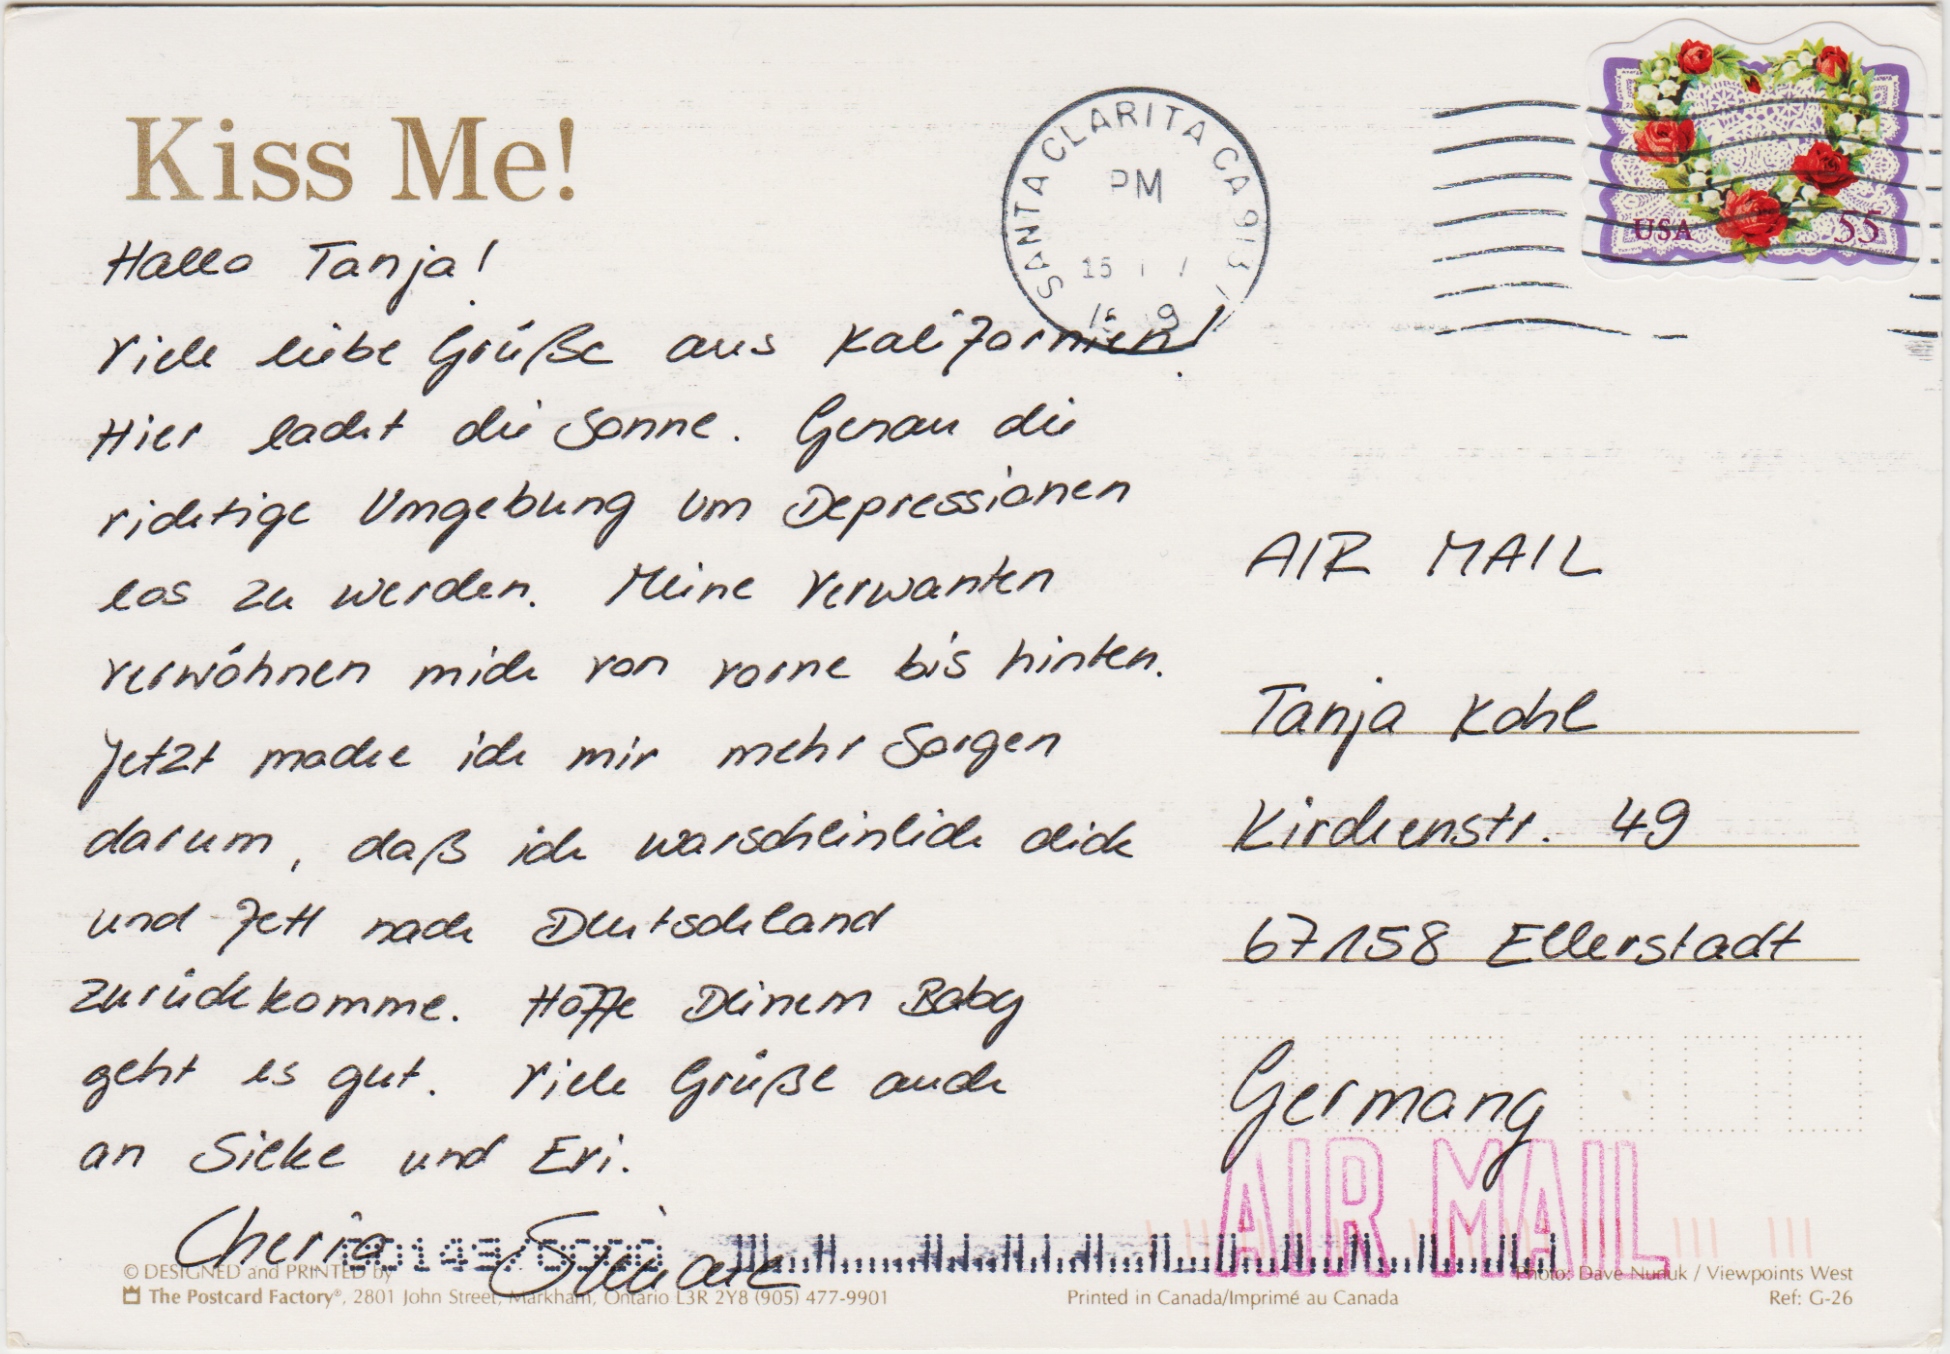 Kiss Me!
SANTA CLARITA CA 913
PM
15
USA 55
Hallo Tanja!
Viele liebe Grüße aus Kalifornien!
Hier lacht die Sonne. Genau die
richtige Umgebung um Depressionen
los zu werden. Meine Verwanten
verwöhnen mich von vorne bis hinten.
Jetzt mache ich mir mehr Sorgen
darum, daß ich warscheinlich dick
und fett nach Deutschland
zurückkomme. Hoffe Deinem Baby
geht es gut. Viele Grüße auch
an Silke und Evi.
AIR MAIL
Tanja Kohl
Kirchenstr. 49
67158 Ellerstadt
Germany
AIR MAIL
© DESIGNED and PRINTED by
The Postcard Factory®, 2801 John Street, Markham, Ontario L3R 2Y8 (905) 477-9901
Printed in Canada/Imprimé au Canada
Photo: Dave Nunuk / Viewpoints West
Ref: G-26